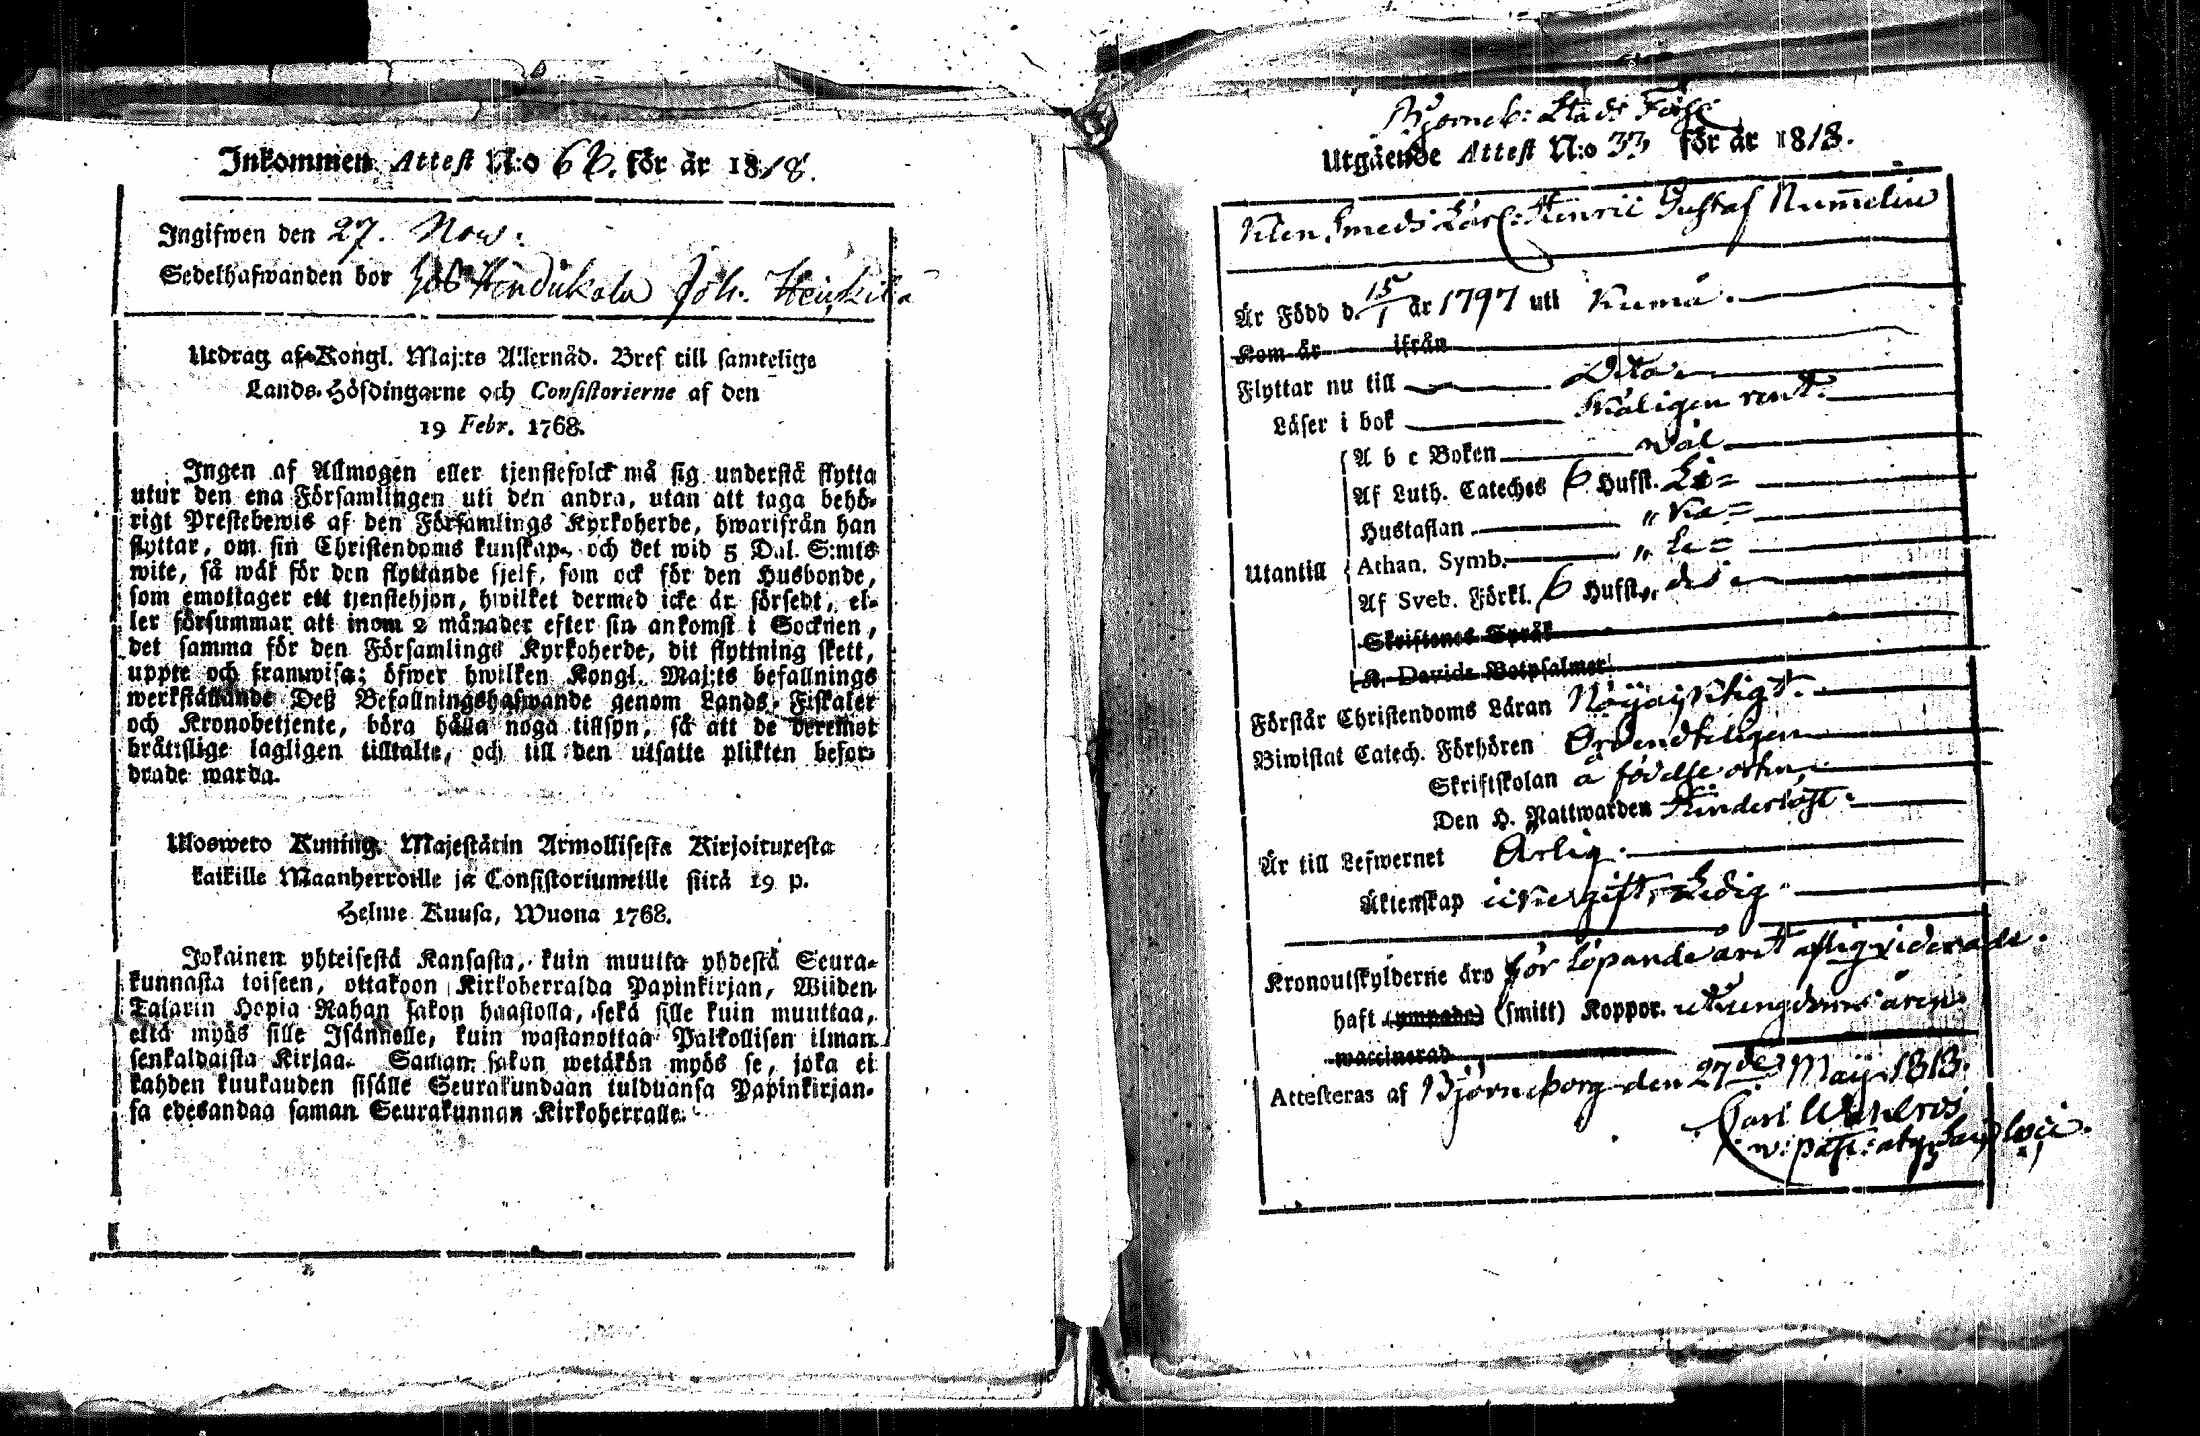 Inkommen Attest N:o 68. för år 1818.
Ingifwen den 27. Now:
Sedelhafwanden bor Joh. Heickilä
Utdrag af Kongl. Maj:ts Allernåd. Bref till samtelige
Lands-Höfdingarne och Consistorierne af den
19 Febr. 1768.
Ingen af Allmogen eller tjenstefolck må sig understå flytta
utur den ena Församlingen uti den andra, utan att taga behö-
rigt Prestebewis af den Församlings Kyrkoherde, hwarifrån han
flyttar, om sin Christendoms kunskap, och det wid 5 Dal. S:mts
wite, så wäl för den flyttande sjelf, som ock för den Husbonde,
som emottager ett tjenstehjon, hwilket dermed icke är försedt, el-
ler försummar att inom 2 månader efter sin ankomst i Socknen,
det samma för den Församlings Kyrkoherde, dit flyttning skett,
uppte och framwisa; öfwer hwilken Kongl. Maj:ts befallnings
werkställande Deß Befallningshafwande genom Lands-Fiskaler
och Kronobetjente, böra hålla noga tillsyn, så att de deremot
brättslige lagligen tilltalte, och till den utsatte plikten befor-
drade warda.
Ulosweto Kuning. Majestätin Armollisesta Kirjoituxesta
kaikille Maanherroille ja Consistoriumeille siitä 19 p.
Helme Kuusa, Wuona 1768.
Jokainen yhteisestä Kansasta, kuin muutta yhdestä Seura-
kunnasta toiseen, ottakoon Kirkoherralda Papinkirjan, Wiiden
Talarin Hopia Rahan sakon haastolla, sekä sille kuin muuttaa,
että myös sille Isännelle, kuin wastanottaa Palkollisen ilman
senkaldaista Kirjaa. Saman sakon wetäkön myös se, joka ei
kahden kuukauden sisälle Seurakundaan tulduansa Papinkirjan-
sa edesandaa saman Seurakunnan Kirkoherralle.
Björneb: Stads Förs:
Utgående Attest N:o 33 för år 1818.
Klen Smeds Lärl: Henric Gustaf Nummelin
Är Född d. 15/1 år 1797 uti Kumå.
Kom år ifrån
Flyttar nu till Dito
Läser i bok Skäligen rent.
A b c Boken wäl
Af Luth. Cateches 6 Hufst.
Hustaflan
Athan. Symb.
Utantill
Af Sveb. Förkl. 6 Hufst.
Skriftenes Språk
K. Davids Botpsalmer
Förstår Christendoms Läran Nöjaktigt.
Biwistat Catech. Förhören Ordenteligen
Skriftskolan å födelse orten,
Den H. Nattwarden Hinderlöst.
Är till Lefwernet Ärlig.
Äktenskap icke gift, Ledig
Kronoutskylderne äro för löpande året afligviderade.
haft (ympade) (smitt) Koppor. i Ungdoms åren.
waccinerad
Attesteras af Björneborg den 27de Maij 1818.
Carl Wahlroos